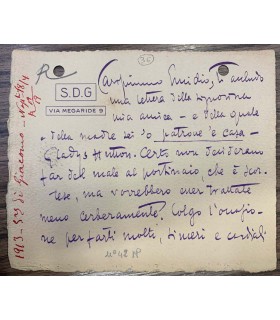 R
S.D.G
VIA MEGARIDE 9
Carissimo Guido, ti accludo
una lettera della signorina
mia amica — e della quale
della madre sei
Gladys Hutton. Certo, non desiderano
far del male al portinaio che è scor-
tese, ma vorrebbero esser trattate
meno cerberamente. Colgo l'occasio-
ne per farti molti, sinceri e cordiali
nº 42 PP
1913 - di Giacomo - Nap